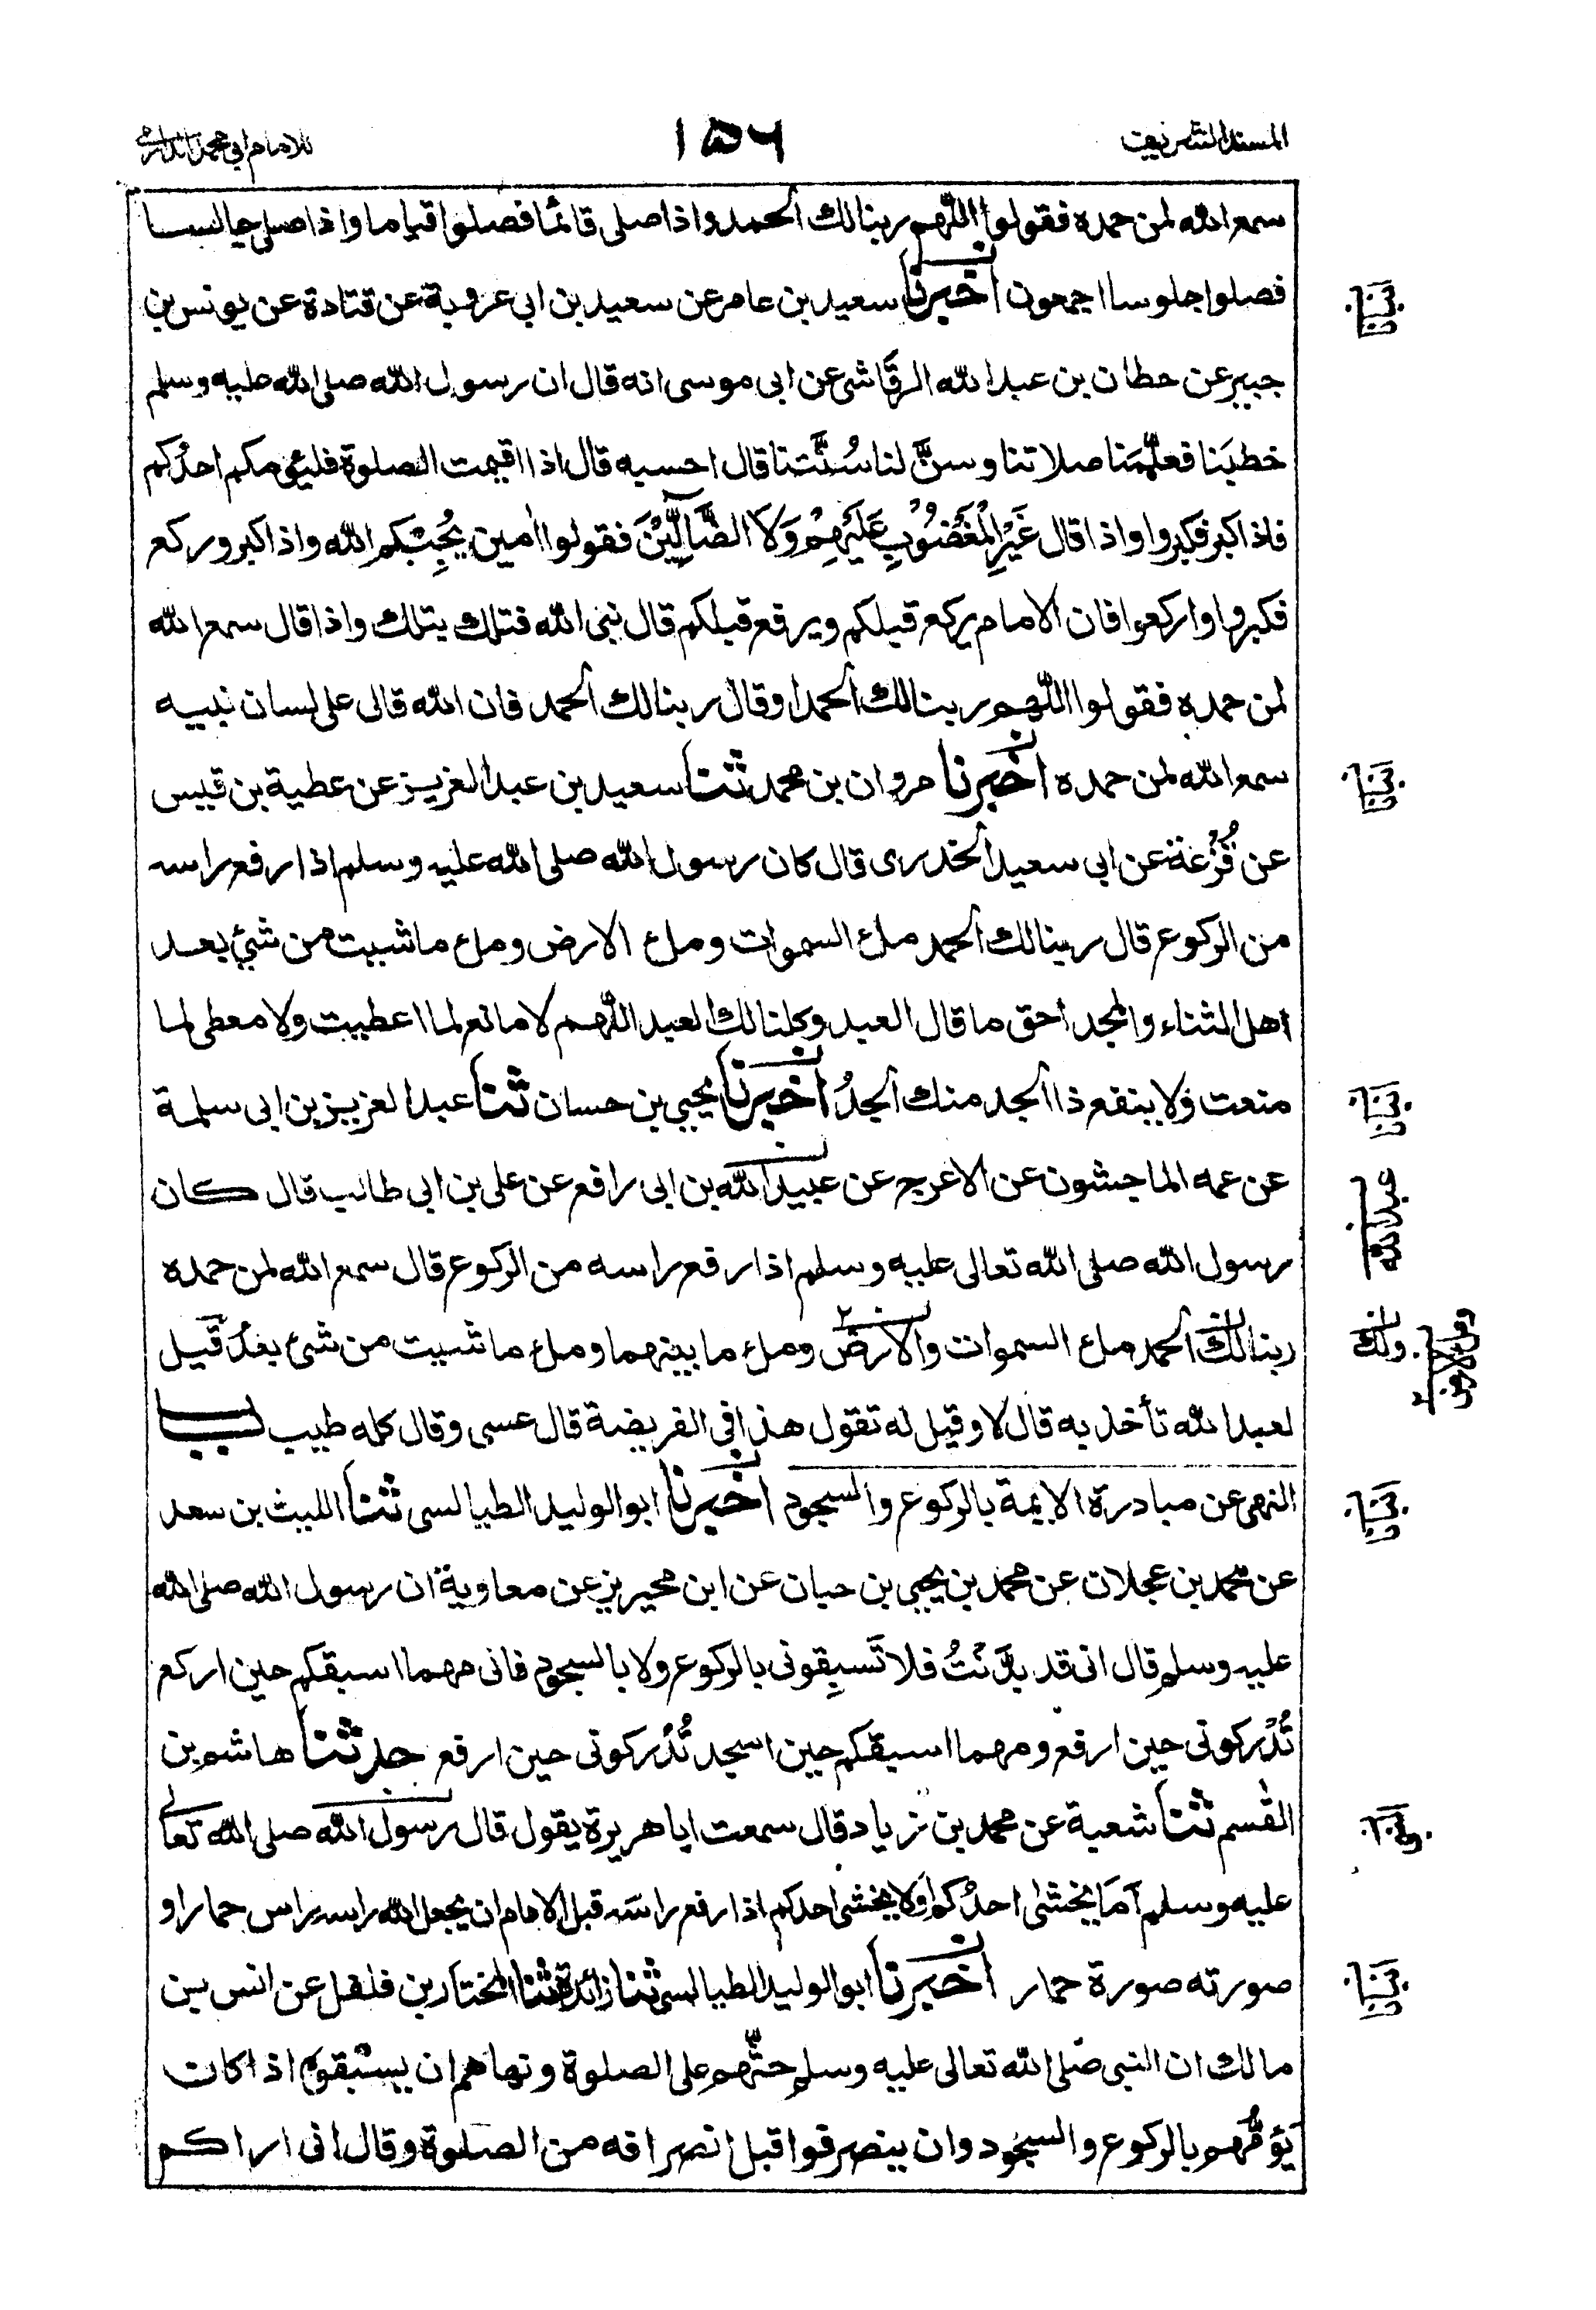 المسند الشريف
١٥٦
للامام ابی محمد الدارمی
سمع الله لمن حمده فقولوا اللّهم ربنا لك الحمد واذا صلی قائمًا فصلوا قیاما واذا صلی جالسا
فصلوا جلوسا اجمعون اخبرنا سعید بن عامر عن سعید بن ابی عروبة عن قتادة عن یونس بن
جبیر عن حطان بن عبد الله الرقّاشی عن ابی موسی انه قال ان رسول الله صلی الله علیه وسلم
خطبَنا فعلّمَنا صلاتنا وسنَّ لنا سُنَّتنا قال احسبه قال اذا اقیمت الصلوة فلیؤمکم احدُکم
فاذا کبر فکبروا واذا قال غَيْرِ الْمَغْضُوْبِ عَلَيْهِمْ وَلَا الضَّآلِّيْنَ فقولوا اٰمین یُجِبْکم الله واذا کبر ورکع
فکبروا وارکعوا فان الامام یرکع قبلکم ویرفع قبلکم قال نبی الله فتلك بتلك واذا قال سمع الله
لمن حمده فقولوا اللّهم ربنا لك الحمد او قال ربنا لك الحمد فان الله قال علی لسان نبیه
سمع الله لمن حمده اخبرنا مروان بن محمد ثنا سعید بن عبد العزیز عن عطیة بن قیس
عن قُزْعَة عن ابی سعید الخدری قال کان رسول الله صلی الله علیه وسلم اذا رفع راسه
من الرکوع قال ربنا لك الحمد ملء السموات وملء الارض وملء ما شئت من شیٔ بعد
اهل الثناء والمجد احق ما قال العبد وکلنا لك عبد اللّهم لا مانع لما اعطیت ولا معطی لما
منعت ولا ینفع ذا الجد منك الجدُ اخبرنا یحیی بن حسان ثنا عبد العزیز بن ابی سلمة
عن عمه الماجشون عن الاعرج عن عبید الله بن ابی رافع عن علی بن ابی طالب قال کان
رسول الله صلی الله تعالی علیه وسلم اذا رفع راسه من الرکوع قال سمع الله لمن حمده
ربنا لك الحمد ملء السموات والارض وملء ما بینهما وملء ما شئت من شئ بعدُ قیل
لعبد الله تأخذ به قال لا وقیل له تقول هذا فی الفریضة قال عسی وقال کله طیب باب
النهی عن مبادرة الایمة بالرکوع والسجود اخبرنا ابو الولید الطیالسی ثنا اللیث بن سعد
عن محمد بن عجلان عن محمد بن یحیی بن حبان عن ابن محیریز عن معاویة ان رسول الله صلی الله
علیه وسلم قال انی قد بدَّنْتُ فلا تَسبِقونی بالرکوع ولا بالسجود فانی مهما اسبقکم حین ارکع
تُدْرکونی حین ارفع ومهما اسبقکم حین اسجد تُدْرکونی حین ارفع حدثنا هاشم بن
القٰسم ثنا شعبة عن محمد بن زیاد قال سمعت ابا هریرة یقول قال رسول الله صلی الله تعالی
علیه وسلم اَمَا یخشٰی احدُکم او لا یخشٰی احدکم اذا رفع راسَه قبل الامام ان یجعل الله راسه راس حمار او
صورته صورة حمار اخبرنا ابو الولید الطیالسی ثنا زائدة ثنا المختار بن فلفل عن انس بین
مالك ان النبی صلی الله تعالی علیه وسلم حثّهم علی الصلوة ونهاهم ان یسبقوه اذا کان
یؤمُّهم بالرکوع والسجود وان ینصرفوا قبل انصرافه من الصلوة وقال انی اراکم
عبد الله
ولك